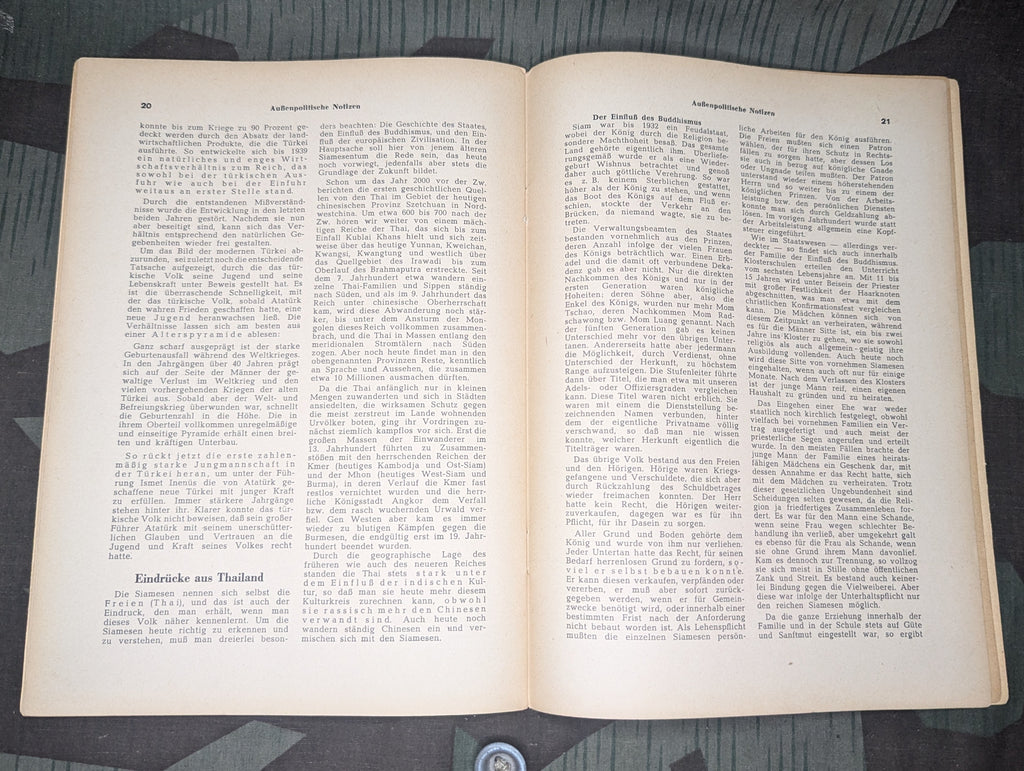 20
Außenpolitische Notizen
konnte bis zum Kriege zu 90 Prozent ge-
deckt werden durch den Absatz der land-
wirtschaftlichen Produkte, die die Türkei
ausführte. So entwickelte sich bis 1939
ein natürliches und enges Wirt-
schaftsverhältnis zum Reich, das
sowohl bei der türkischen Aus-
fuhr wie auch bei der Einfuhr
weitaus an erster Stelle stand.
Durch die entstandenen Mißverständ-
nisse wurde die Entwicklung in den letzten
beiden Jahren gestört. Nachdem sie nun
aber beseitigt sind, kann sich das Ver-
hältnis entsprechend den natürlichen Ge-
gebenheiten wieder frei gestalten.
Um das Bild der modernen Türkei ab-
zurunden, sei zuletzt noch die entscheidende
Tatsache aufgezeigt, durch die das tür-
kische Volk seine Jugend und seine
Lebenskraft unter Beweis gestellt hat. Es
ist die überraschende Schnelligkeit, mit
der das türkische Volk, sobald Atatürk
den wahren Frieden geschaffen hatte, eine
neue Jugend heranwachsen ließ. Die
Verhältnisse lassen sich am besten aus
einer Alterspyramide ablesen:
Ganz scharf ausgeprägt ist der starke
Geburtenausfall während des Weltkrieges.
In den Jahrgängen über 40 Jahren prägt
sich auf der Seite der Männer der ge-
waltige Verlust im Weltkrieg und den
vielen vorhergehenden Kriegen der alten
Türkei aus. Sobald aber der Welt- und
Befreiungskrieg überwunden war, schnellt
die Geburtenzahl in die Höhe. Die in
ihrem Oberteil vollkommen unregelmäßige
und einseitige Pyramide erhält einen brei-
ten und kräftigen Unterbau.
So rückt jetzt die erste zahlen-
mäßig starke Jungmannschaft in
der Türkei heran, um unter der Füh-
rung Ismet Inenüs die von Atatürk ge-
schaffene neue Türkei mit junger Kraft
zu erfüllen. Immer stärkere Jahrgänge
stehen hinter ihr. Klarer konnte das tür-
kische Volk nicht beweisen, daß sein großer
Führer Atatürk mit seinem unerschütter-
lichen Glauben und Vertrauen an die
Jugend und Kraft seines Volkes recht
hatte.
Eindrücke aus Thailand
Die Siamesen nennen sich selbst die
Freien (Thai), und das ist auch der
Eindruck, den man erhält, wenn man
dieses Volk näher kennenlernt. Um die
Siamesen heute richtig zu erkennen und
zu verstehen, muß man dreierlei beson-
ders beachten: Die Geschichte des Staates,
den Einfluß des Buddhismus, und den Ein-
fluß der europäischen Zivilisation. In der
Hauptsache soll hier von jenem älteren
Siamesentum die Rede sein, das heute
noch vorwiegt, jedenfalls aber stets die
Grundlage der Zukunft bildet.
Schon um das Jahr 2000 vor der Zw.
berichten die ersten geschichtlichen Quel-
len von den Thai im Gebiet der heutigen
chinesischen Provinz Szetchuan in Nord-
westchina. Um etwa 600 bis 700 nach der
Zw. hören wir weiter von einem mäch-
tigen Reiche der Thai, das sich bis zum
Einfall Kublai Khans hielt und sich zeit-
weise über das heutige Yunnan, Kweichan,
Kwangsi, Kwangtung und westlich über
das Quellgebiet des Irawadi bis zum
Oberlauf des Brahmaputra erstreckte. Seit
dem 7. Jahrhundert etwa wandern ein-
zelne Thai-Familien und Sippen ständig
nach Süden, und als im 9. Jahrhundert das
Reich unter chinesische Oberherrschaft
kam, wird diese Abwanderung noch stär-
ker, bis unter dem Ansturm der Mon-
golen dieses Reich vollkommen zusammen-
brach, und die Thai in Massen entlang den
meridionalen Stromtälern nach Süden
zogen. Aber noch heute findet man in den
obengenannten Provinzen Reste, kenntlich
an Sprache und Aussehen, die zusammen
etwa 10 Millionen ausmachen dürften.
Da die Thai anfänglich nur in kleinen
Mengen zuwanderten und sich in Städten
ansiedelten, die wirksamen Schutz gegen
die meist zerstreut im Lande wohnenden
Urvölker boten, ging ihr Vordringen zu-
nächst ziemlich kampflos vor sich. Erst die
großen Massen der Einwanderer im
13. Jahrhundert führten zu Zusammen-
stößen mit den herrschenden Reichen der
Kmer (heutiges Kambodja und Ost-Siam)
und der Mhon (heutiges West-Siam und
Burma), in deren Verlauf die Kmer fast
restlos vernichtet wurden und die herr-
liche Königsstadt Angkor dem Verfall
bzw. dem rasch wuchernden Urwald ver-
fiel. Gen Westen aber kam es immer
wieder zu blutigen Kämpfen gegen die
Burmesen, die endgültig erst im 19. Jahr-
hundert beendet wurden.
Durch die geographische Lage des
früheren wie auch des neueren Reiches
standen die Thai stets stark unter
dem Einfluß der indischen Kul-
tur, so daß man sie heute mehr diesem
Kulturkreis zurechnen kann, obwohl
sie rassisch mehr den Chinesen
verwandt sind. Auch heute noch
wandern ständig Chinesen ein und ver-
mischen sich mit den Siamesen.
Außenpolitische Notizen
21
Der Einfluß des Buddhismus
Siam war bis 1932 ein Feudalstaat,
wobei der König durch die Religion be-
sondere Machthoheit besaß. Das gesamte
Land gehörte eigentlich ihm. Überliefe-
rungsgemäß wurde er als eine Wieder-
geburt Wishnus betrachtet und genoß
daher auch göttliche Verehrung. So war
es z. B. keinem Sterblichen gestattet,
höher als der König zu stehen, und wenn
das Boot des Königs auf dem Fluß er-
schien, stockte der Verkehr an den
Brücken, da niemand wagte, sie zu be-
treten.
Die Verwaltungsbeamten des Staates
bestanden vornehmlich aus den Prinzen,
deren Anzahl infolge der vielen Frauen
des Königs beträchtlich war. Einen Erb-
adel und die damit oft verbundene Deka-
denz gab es aber nicht. Nur die direkten
Nachkommen des Königs und nur in der
ersten Generation waren königliche
Hoheiten; deren Söhne aber, also die
Enkel des Königs, wurden nur mehr Mom
Tschao, deren Nachkommen Mom Rad-
schawong bzw. Mom Luang genannt. Nach
der fünften Generation gab es keinen
Unterschied mehr vor den übrigen Unter-
tanen. Andererseits hatte aber jedermann
die Möglichkeit, durch Verdienst, ohne
Unterschied der Herkunft, zu höchstem
Range aufzusteigen. Die Stufenleiter führte
dann über Titel, die man etwa mit unseren
Adels- oder Offiziersgraden vergleichen
kann. Diese Titel waren nicht erblich. Sie
waren mit einem die Dienststellung be-
zeichnenden Namen verbunden, hinter
dem der eigentliche Privatname völlig
verschwand, so daß man nie wissen
konnte, welcher Herkunft eigentlich die
Titelträger waren.
Das übrige Volk bestand aus den Freien
und den Hörigen. Hörige waren Kriegs-
gefangene und Verschuldete, die sich aber
durch Rückzahlung des Schuldbetrages
wieder freimachen konnten. Der Herr
hatte kein Recht, die Hörigen weiter-
zuverkaufen, dagegen war es für ihn
Pflicht, für ihr Dasein zu sorgen.
Aller Grund und Boden gehörte dem
König und wurde von ihm nur verliehen.
Jeder Untertan hatte das Recht, für seinen
Bedarf herrenlosen Grund zu fordern, so-
viel er selbst bebauen konnte.
Er kann diesen verkaufen, verpfänden oder
vererben, er muß aber sofort zurück-
gegeben werden, wenn er für Gemein-
zwecke benötigt wird, oder innerhalb einer
bestimmten Frist nach der Anforderung
nicht bebaut worden ist. Als Lehenspflicht
mußten die einzelnen Siamesen persön-
liche Arbeiten für den König ausführen.
Die Freien mußten sich einen Patron
wählen, der für ihren Schutz in Rechts-
fällen zu sorgen hatte, aber dessen Los
sie auch in bezug auf königliche Gnade
oder Ungnade teilen mußten. Der Patron
unterstand wieder einem höherstehenden
Herrn und so weiter bis zu einem der
königlichen Prinzen. Von der Arbeits-
leistung bzw. den persönlichen Diensten
konnte man sich durch Geldzahlung ab-
lösen. Im vorigen Jahrhundert wurde statt
der Arbeitsleistung allgemein eine Kopf-
steuer eingeführt.
Wie im Staatswesen — allerdings ver-
deckter — so findet sich auch innerhalb
der Familie der Einfluß des Buddhismus.
Klosterschulen erteilen den Unterricht
vom sechsten Lebensjahre an. Mit 11 bis
15 Jahren wird unter Beisein der Priester
mit großer Festlichkeit der Haarknoten
abgeschnitten, was man etwa mit dem
christlichen Konfirmationsfest vergleichen
kann. Die Mädchen können sich von
diesem Zeitpunkt an verheiraten, während
es für die Männer Sitte ist, ein bis zwei
Jahre ins Kloster zu gehen, wo sie sowohl
religiös als auch allgemein-geistig ihre
Ausbildung vollenden. Auch heute noch
wird diese Sitte von vornehmen Siamesen
eingehalten, wenn auch oft nur für einige
Monate. Nach dem Verlassen des Klosters
ist der junge Mann reif, einen eigenen
Haushalt zu gründen und zu heiraten.
Das Eingehen einer Ehe war weder
staatlich noch kirchlich festgelegt, obwohl
vielfach bei vornehmen Familien ein Ver-
trag ausgefertigt und auch meist der
priesterliche Segen angerufen und erteilt
wurde. In den meisten Fällen brachte der
junge Mann der Familie eines heirats-
fähigen Mädchens ein Geschenk dar, mit
dessen Annahme er das Recht hatte, sich
mit dem Mädchen zu verheiraten. Trotz
dieser gesetzlichen Ungebundenheit sind
Scheidungen selten gewesen, da die Reli-
gion ja friedfertiges Zusammenleben for-
dert. Es war für den Mann eine Schande,
wenn seine Frau wegen schlechter Be-
handlung ihn verließ, aber umgekehrt galt
es ebenso für die Frau als Schande, wenn
sie ohne Grund ihrem Mann davonlief.
Kam es dennoch zur Trennung, so vollzog
sie sich meist in Stille ohne öffentlichen
Zank und Streit. Es bestand auch keiner-
lei Bindung gegen die Vielweiberei. Aber
diese war infolge der Unterhaltspflicht nur
den reichen Siamesen möglich.
Da die ganze Erziehung innerhalb der
Familie und in der Schule stets auf Güte
und Sanftmut eingestellt war, so ergibt